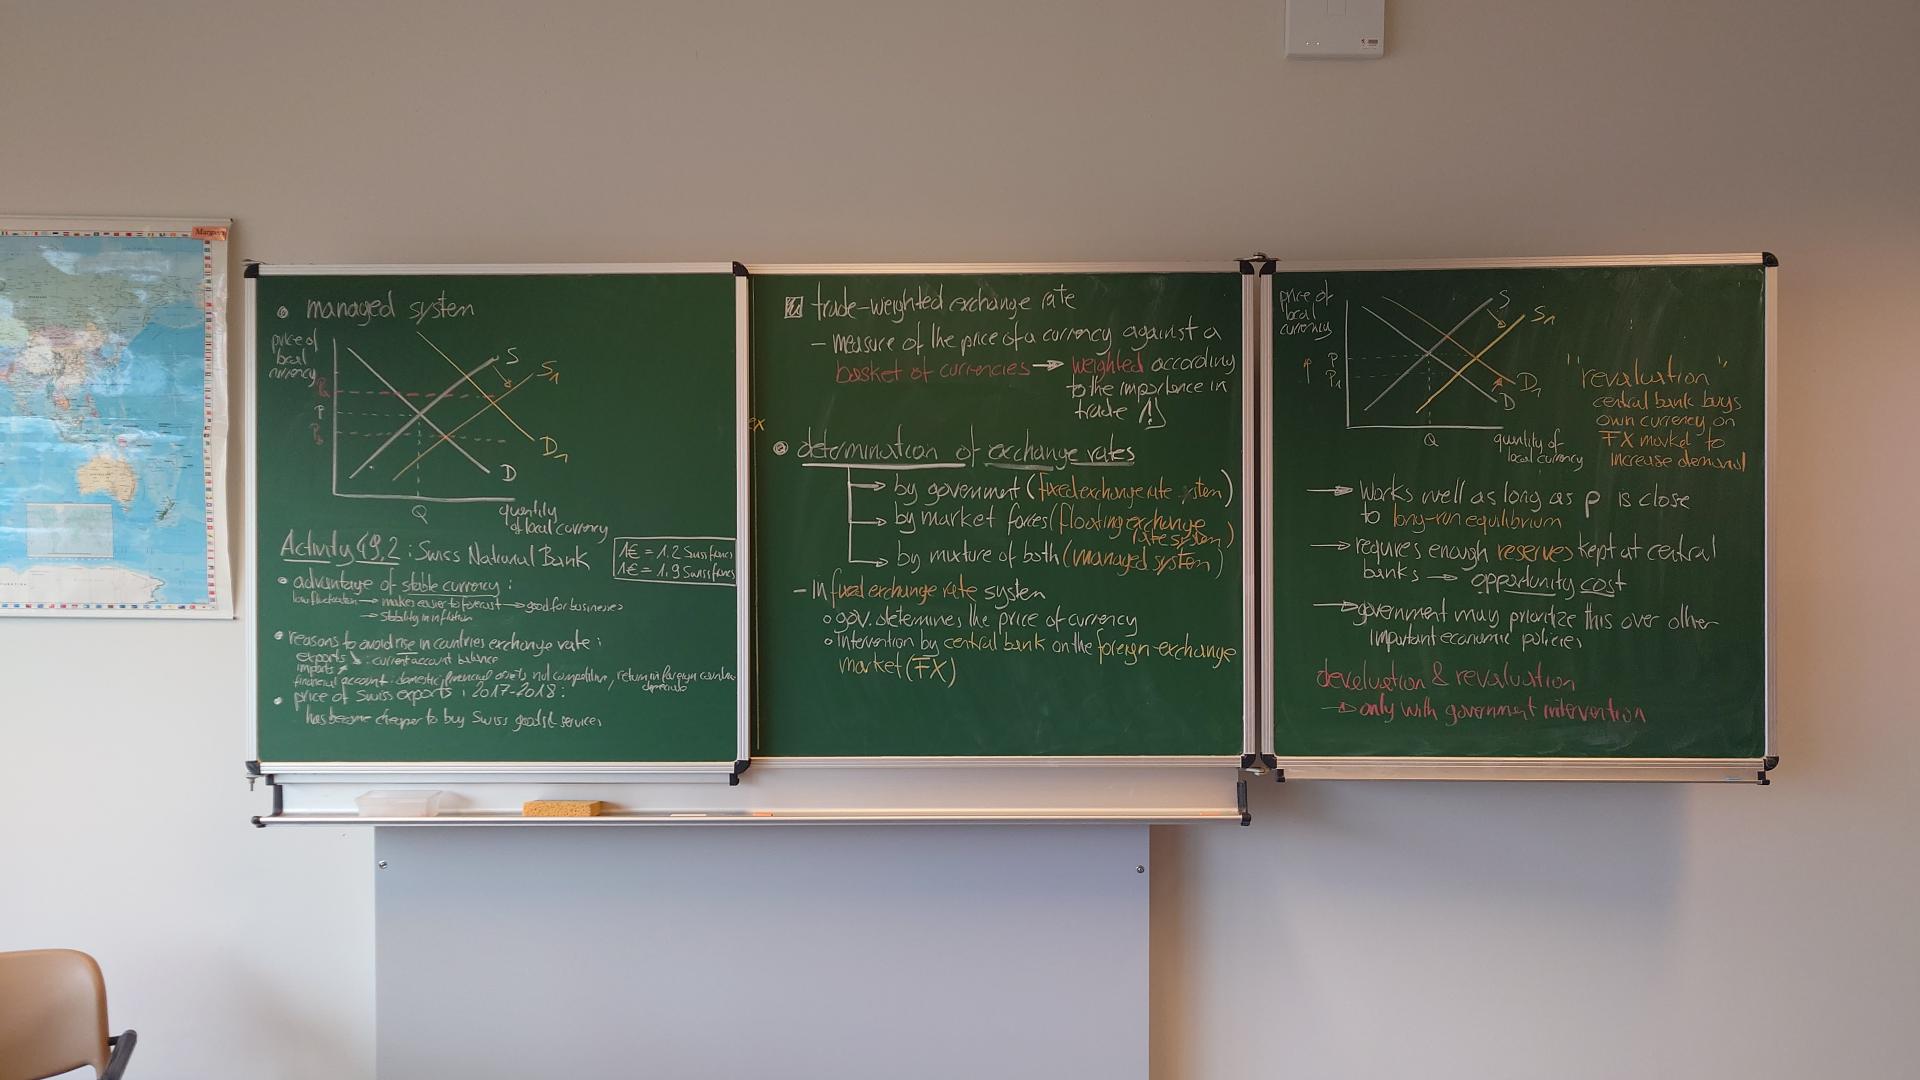 managed system
price of
local
currency
P
S
S1
D1
D
Q
quantity
of local currency
Activity 49.2: Swiss National Bank
1€ = 1.2 Swiss francs
1€ = 1.9 Swiss francs
advantage of stable currency:
low fluctuation → makes easier to forecast → good for businesses
→ stability in inflation
reasons to avoid rise in countries exchange rate:
exports ↘: current account balance
imports ↗
financial account: domestic financial assets not competitive, return in foreign countries
depreciate
price of Swiss exports: 2017-2018:
has become cheaper to buy Swiss goods & services
trade-weighted exchange rate
- measure of the price of a currency against a
basket of currencies → weighted according
to the importance in
trade
ex
determination of exchange rates
→ by government (fixed exchange rate stem)
→ by market forces (floating exchange
rate system)
→ by mixture of both (managed system)
- In fixed exchange rate system
gov. determines the price of currency
intervention by central bank on the foreign exchange
market (FX)
price of
local
currency
↑
P
P1
S
S1
D1
D
Q
quantity of
local currency
"revaluation"
central bank buys
own currency on
FX market to
increase demand
→ works well as long as P is close
to long-run equilibrium
→ requires enough reserves kept at central
banks → opportunity cost
→ government may prioritize this over other
important economic policies
devaluation & revaluation
→ only with government intervention